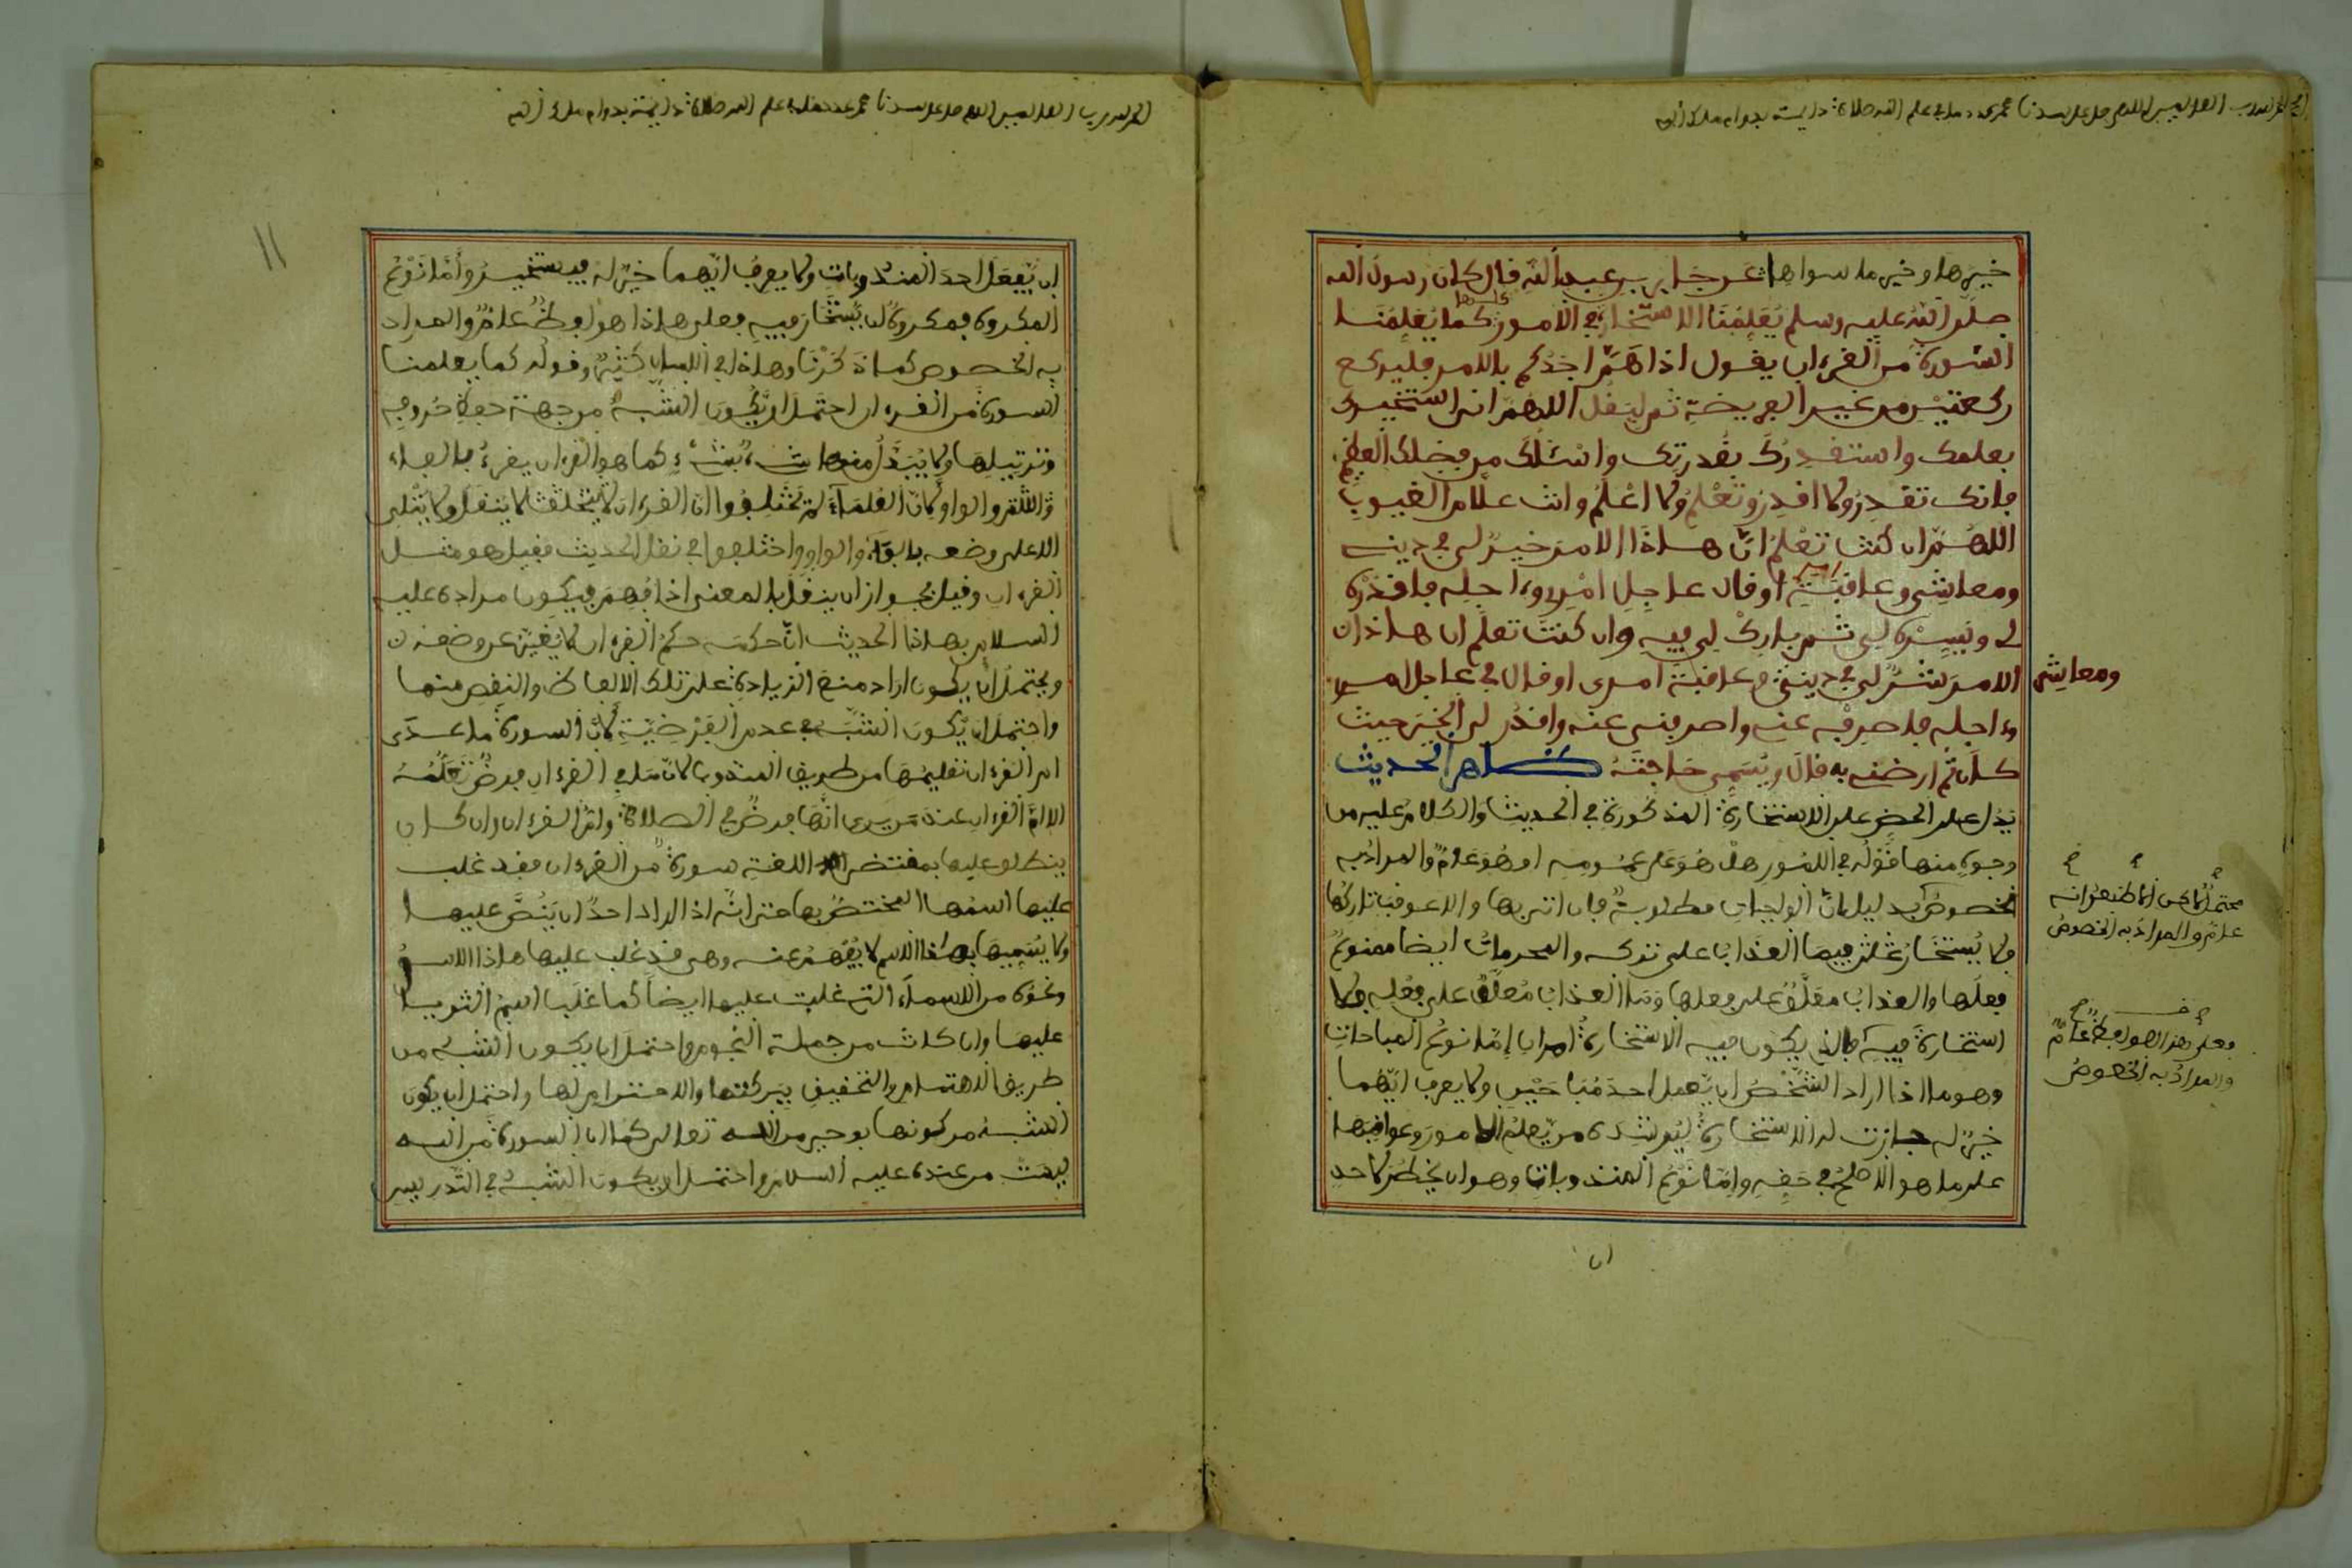 الحمد لله رب العالمين اللهم صل على سيدنا محمد عدد ما في علم الله صلاة دائمة بدوام ملك الله
خيرها وخير ما سواها عن جابر بن عبد الله قال كان رسول الله
صلى الله عليه وسلم يعلمنا الاستخارة في الامور كلها كما يعلمنا
السورة من القرءان يقول اذا هم احدكم بالامر فليركع
ركعتين من غير الفريضة ثم ليقل اللهم اني استخيرك
بعلمك واستقدرك بقدرتك واسئلك من فضلك العظيم
فانك تقدر ولا اقدر وتعلم ولا اعلم وانت علام الغيوب
اللهم ان كنت تعلم ان هاذا الامر خير لي في ديني
ومعاشي وعاقبة امري او قال عاجل امري وءاجله فاقدره
لي ويسره لي ثم بارك لي فيه وان كنت تعلم ان هاذا
الامر شر لي في ديني ومعاشي وعاقبة امري او قال في عاجل امري
وءاجله فاصرفه عني واصرفني عنه واقدر لي الخير حيث
كان ثم ارضني به قال ويسمي حاجته ظاهر الحديث
يدل على الحض على الاستخارة المذكورة في الحديث والكلام عليه من
وجوه منها قوله في الامور هل هو على عمومه او هو عام والمراد به
الخصوص بدليل ان الواجبات مطلوبة فان اتى بها والا عوقب تاركها
ولا يستخار فيها العذاب على تركه والمحرمات ايضا ممنوع
فعلها والعذاب معلق على فعلها وما العذاب معلق على فعله ولا
استخارة فيه فالذي يكون فيه الاستخارة امران اما نوع المباحات
وهو ما اذا اراد الشخص ان يفعل احد مباحين ولا يعرف ايهما
خير له جازت له الاستخارة ليرشده من يعلم الامور وعواقبها
على ما هو الاصلح في حقه واما نوع المندوبات وهو ان يخطر لاحد
ان
ومعاشي
محتمل
عام والمراد به الخصوص
فعلى هذا هو لفظ عام
والمراد به الخصوص
الحمد لله رب العالمين اللهم صل على سيدنا محمد عدد ما في علم الله صلاة دائمة بدوام ملك الله
١١
ان يفعل احد المندوبات ولا يعرف ايهما خير له فيستخير واما نوع
المكروه فمكروه ان يستخار فيه فعلى هاذا هو لفظ عام والمراد
به الخصوص كما ذكرنا وهاذا في اللسان كثير وقوله كما يعلمنا
السورة من القرءان احتمل ان يكون الشبه من جهة حفظ حروفه
وترتيلها ولا يبدل منها شيء بشيء كما هو القرءان يقرء بالفاء
والثم والواو لان العلماء لم يختلفوا ان القرءان لا ينقل ولا يتلى
الا على وضعه بالفاء والواو واختلفوا في نقل الحديث فقيل هو مثل
القرءان وقيل يجوز ان ينقل بالمعنى اذا فهم فيكون مراده عليه
السلام بهاذا الحديث ان حكمه حكم القرءان لا يغير عن وضعه
ويحتمل ان يكون اراد منع الزيادة على تلك الالفاظ والنقص منها
واحتمل ان يكون الشبه في عدم الفرضية لان السورة ما عدى
ام القرءان تعليمها من طريق المندوب لان ما في القرءان فرض تعلمه
الا ام القرءان عند من يرى انها فرض في الصلاة وام القرءان وان كان
ينطلق عليها بمقتضى اللغة سورة من القرءان فقد غلب
عليها اسمها المختص بها حتى انه اذا اراد احد ان ينص عليها
ولا يسميها بهاذا الاسم لا يفهم عنه وهي قد غلب عليها هاذا الاسم
ونحوه من الاسماء التي غلبت عليها ايضا كما غلب اسم الثريا
عليها وان كانت من جملة النجوم واحتمل ان يكون الشبه من
طريق الاهتمام والتحقيق ببركتها والاحترام لها واحتمل ان يكون
الشبه من كونها بوحي من الله تعالى كما ان السورة من الله
ليست من عنده عليه السلام واحتمل ان يكون الشبه في التدريس